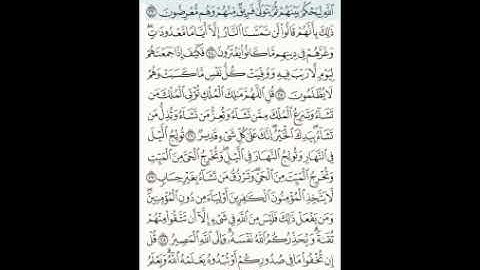 ٱللَّهِ لِيَحْكُمَ بَيْنَهُمْ ثُمَّ يَتَوَلَّىٰ فَرِيقٌ مِّنْهُمْ وَهُم مُّعْرِضُونَ ٢٣
ذَٰلِكَ بِأَنَّهُمْ قَالُوا۟ لَن تَمَسَّنَا ٱلنَّارُ إِلَّآ أَيَّامًا مَّعْدُودَٰتٍ ۖ
وَغَرَّهُمْ فِى دِينِهِم مَّا كَانُوا۟ يَفْتَرُونَ ٢٤ فَكَيْفَ إِذَا جَمَعْنَٰهُمْ
لِيَوْمٍ لَّا رَيْبَ فِيهِ وَوُفِّيَتْ كُلُّ نَفْسٍ مَّا كَسَبَتْ وَهُمْ
لَا يُظْلَمُونَ ٢٥ قُلِ ٱللَّهُمَّ مَٰلِكَ ٱلْمُلْكِ تُؤْتِى ٱلْمُلْكَ مَن
تَشَآءُ وَتَنزِعُ ٱلْمُلْكَ مِمَّن تَشَآءُ وَتُعِزُّ مَن تَشَآءُ وَتُذِلُّ مَن
تَشَآءُ ۖ بِيَدِكَ ٱلْخَيْرُ ۖ إِنَّكَ عَلَىٰ كُلِّ شَىْءٍ قَدِيرٌ ٢٦ تُولِجُ ٱلَّيْلَ
فِى ٱلنَّهَارِ وَتُولِجُ ٱلنَّهَارَ فِى ٱلَّيْلِ ۖ وَتُخْرِجُ ٱلْحَىَّ مِنَ ٱلْمَيِّتِ
وَتُخْرِجُ ٱلْمَيِّتَ مِنَ ٱلْحَىِّ ۖ وَتَرْزُقُ مَن تَشَآءُ بِغَيْرِ حِسَابٍ ٢٧
لَّا يَتَّخِذِ ٱلْمُؤْمِنُونَ ٱلْكَٰفِرِينَ أَوْلِيَآءَ مِن دُونِ ٱلْمُؤْمِنِينَ ۖ
وَمَن يَفْعَلْ ذَٰلِكَ فَلَيْسَ مِنَ ٱللَّهِ فِى شَىْءٍ إِلَّآ أَن تَتَّقُوا۟ مِنْهُمْ
تُقَىٰةً ۗ وَيُحَذِّرُكُمُ ٱللَّهُ نَفْسَهُۥ ۗ وَإِلَى ٱللَّهِ ٱلْمَصِيرُ ٢٨ قُلْ
إِن تُخْفُوا۟ مَا فِى صُدُورِكُمْ أَوْ تُبْدُوهُ يَعْلَمْهُ ٱللَّهُ ۗ وَيَعْلَمُ